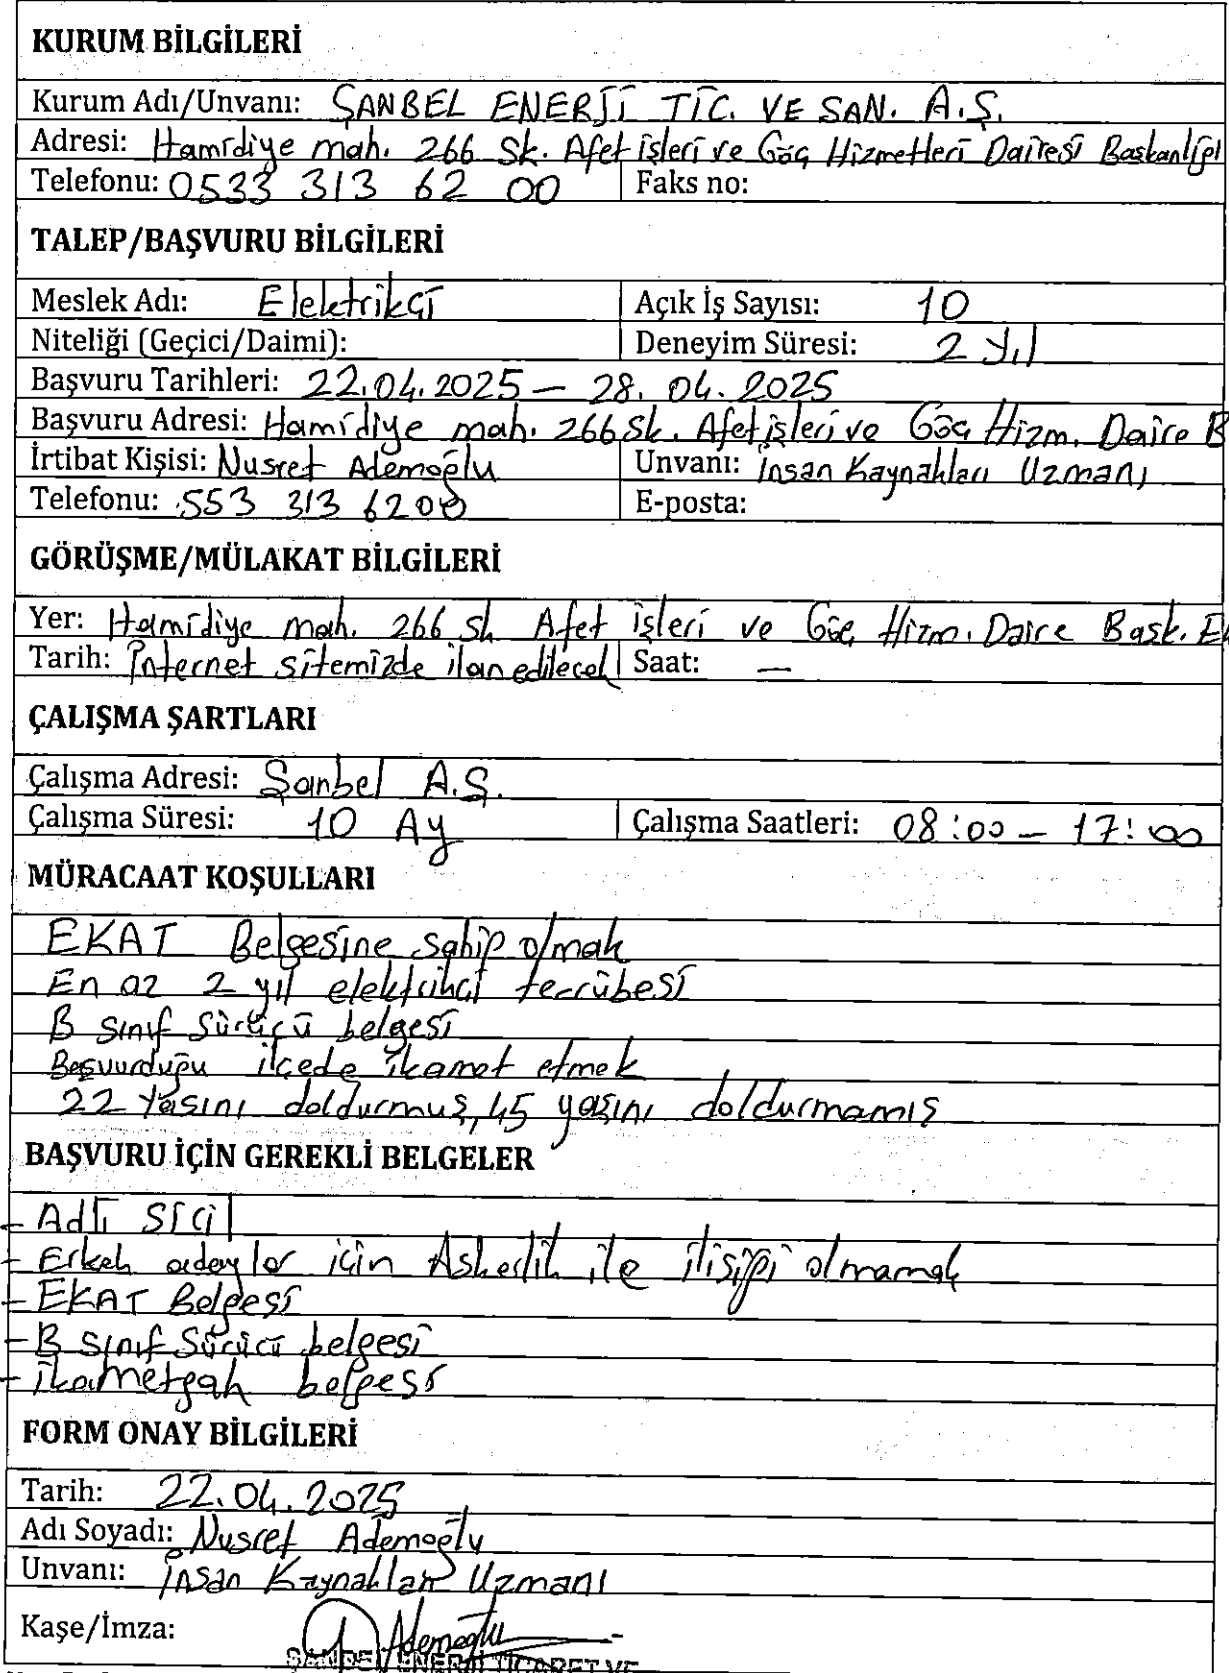 KURUM BİLGİLERİ
Kurum Adı/Unvanı: ŞANBEL ENERJİ TİC. VE SAN. A.Ş.
Adresi: Hamidiye mah. 266 Sk. Afet işleri ve Göç Hizmetleri Dairesi Başkanlığı
Telefonu: 0533 313 62 00 Faks no:
TALEP/BAŞVURU BİLGİLERİ
Meslek Adı: Elektrikçi Açık İş Sayısı: 10
Niteliği (Geçici/Daimi): Deneyim Süresi: 2 yıl
Başvuru Tarihleri: 22.04.2025 – 28.04.2025
Başvuru Adresi: Hamidiye mah. 266 Sk. Afet işleri ve Göç Hizm. Daire B
İrtibat Kişisi: Nusret Ademoğlu Unvanı: İnsan Kaynakları Uzmanı
Telefonu: 553 313 6200 E-posta:
GÖRÜŞME/MÜLAKAT BİLGİLERİ
Yer: Hamidiye mah. 266 sk Afet işleri ve Göç Hizm. Daire Başk. Ek
Tarih: İnternet sitemizde ilan edilecek Saat: —
ÇALIŞMA ŞARTLARI
Çalışma Adresi: Şanbel A.Ş.
Çalışma Süresi: 10 Ay Çalışma Saatleri: 08:00 – 17:00
MÜRACAAT KOŞULLARI
EKAT Belgesine sahip olmak
En az 2 yıl elektrikçi tecrübesi
B sınıf sürücü belgesi
Başvurduğu ilçede ikamet etmek
22 Yaşını doldurmuş, 45 yaşını doldurmamış
BAŞVURU İÇİN GEREKLİ BELGELER
- Adli sicil
- Erkek adaylar için Askerlik ile ilişiği olmamak
- EKAT Belgesi
- B sınıf Sürücü belgesi
- ikametgah belgesi
FORM ONAY BİLGİLERİ
Tarih: 22.04.2025
Adı Soyadı: Nusret Ademoğlu
Unvanı: İnsan Kaynakları Uzmanı
Kaşe/İmza: Ademoğlu
ŞANBEL ENERJİ TİCARET VE